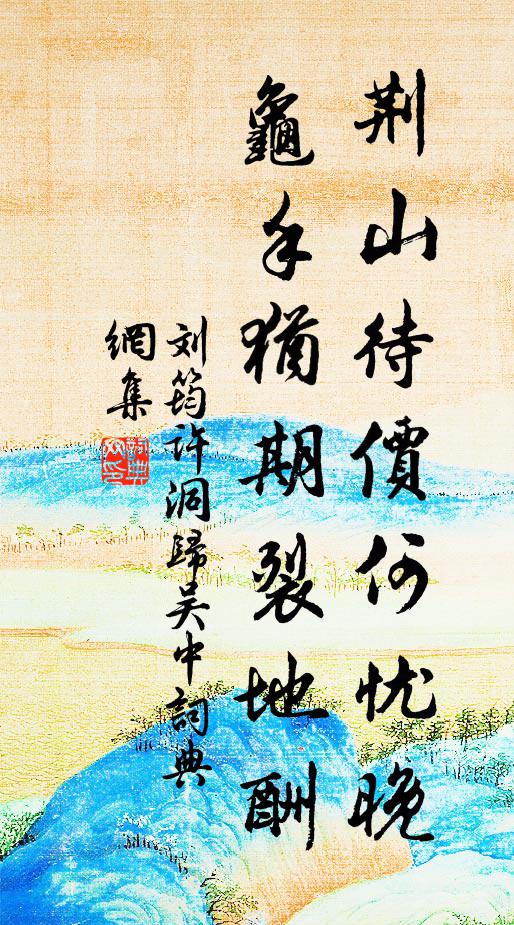 荆山待價何忧晚
龜手猶期裂地酬
刘筠许洞歸吴中詞典
網集